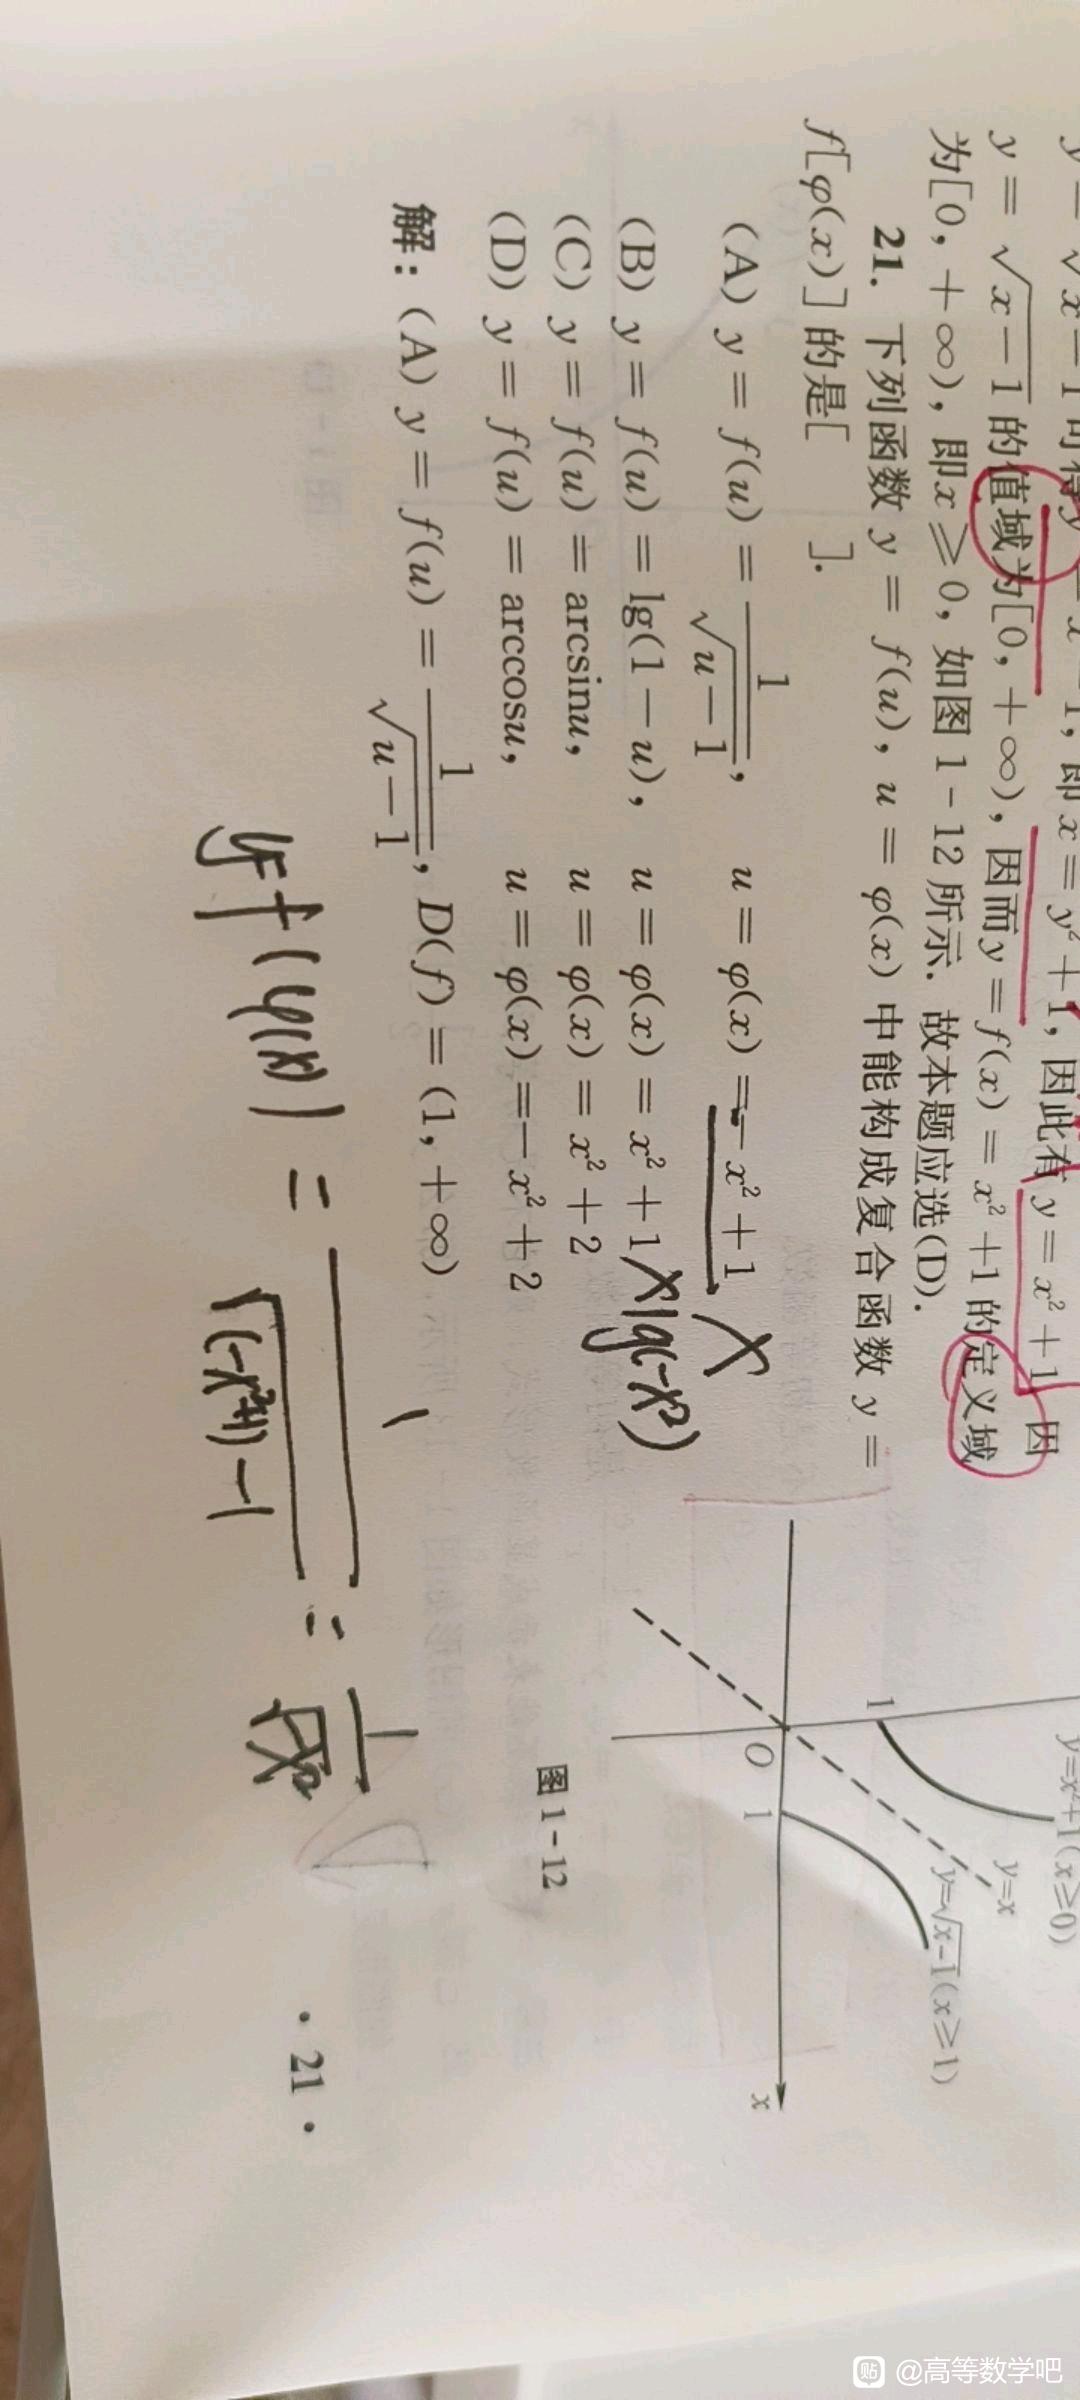 y = √x-1 可得 y² = x-1, 即 x = y² + 1, 因此有 y = x² + 1 因
y = √x-1 的值域为[0, +∞), 因而 y = f(x) = x² + 1 的定义域
为[0, +∞), 即 x ⩾ 0, 如图 1-12 所示. 故本题应选(D).
21. 下列函数 y = f(u), u = φ(x) 中能构成复合函数 y =
f[φ(x)] 的是[ ].
(A) y = f(u) = 1/√u-1, u = φ(x) = -x² + 1 X
(B) y = f(u) = lg(1-u), u = φ(x) = x² + 1 X lg(-x²)
(C) y = f(u) = arcsinu, u = φ(x) = x² + 2
(D) y = f(u) = arccosu, u = φ(x) = -x² + 2
解: (A) y = f(u) = 1/√u-1, D(f) = (1, +∞)
y=f(φ(x)) = 1/√(-x²+1)-1 = 1/√-x²
y=x²+1(x⩾0)
y=x
y=√x-1(x⩾1)
1
O
1
x
图 1-12
· 21 ·
贴 @高等数学吧